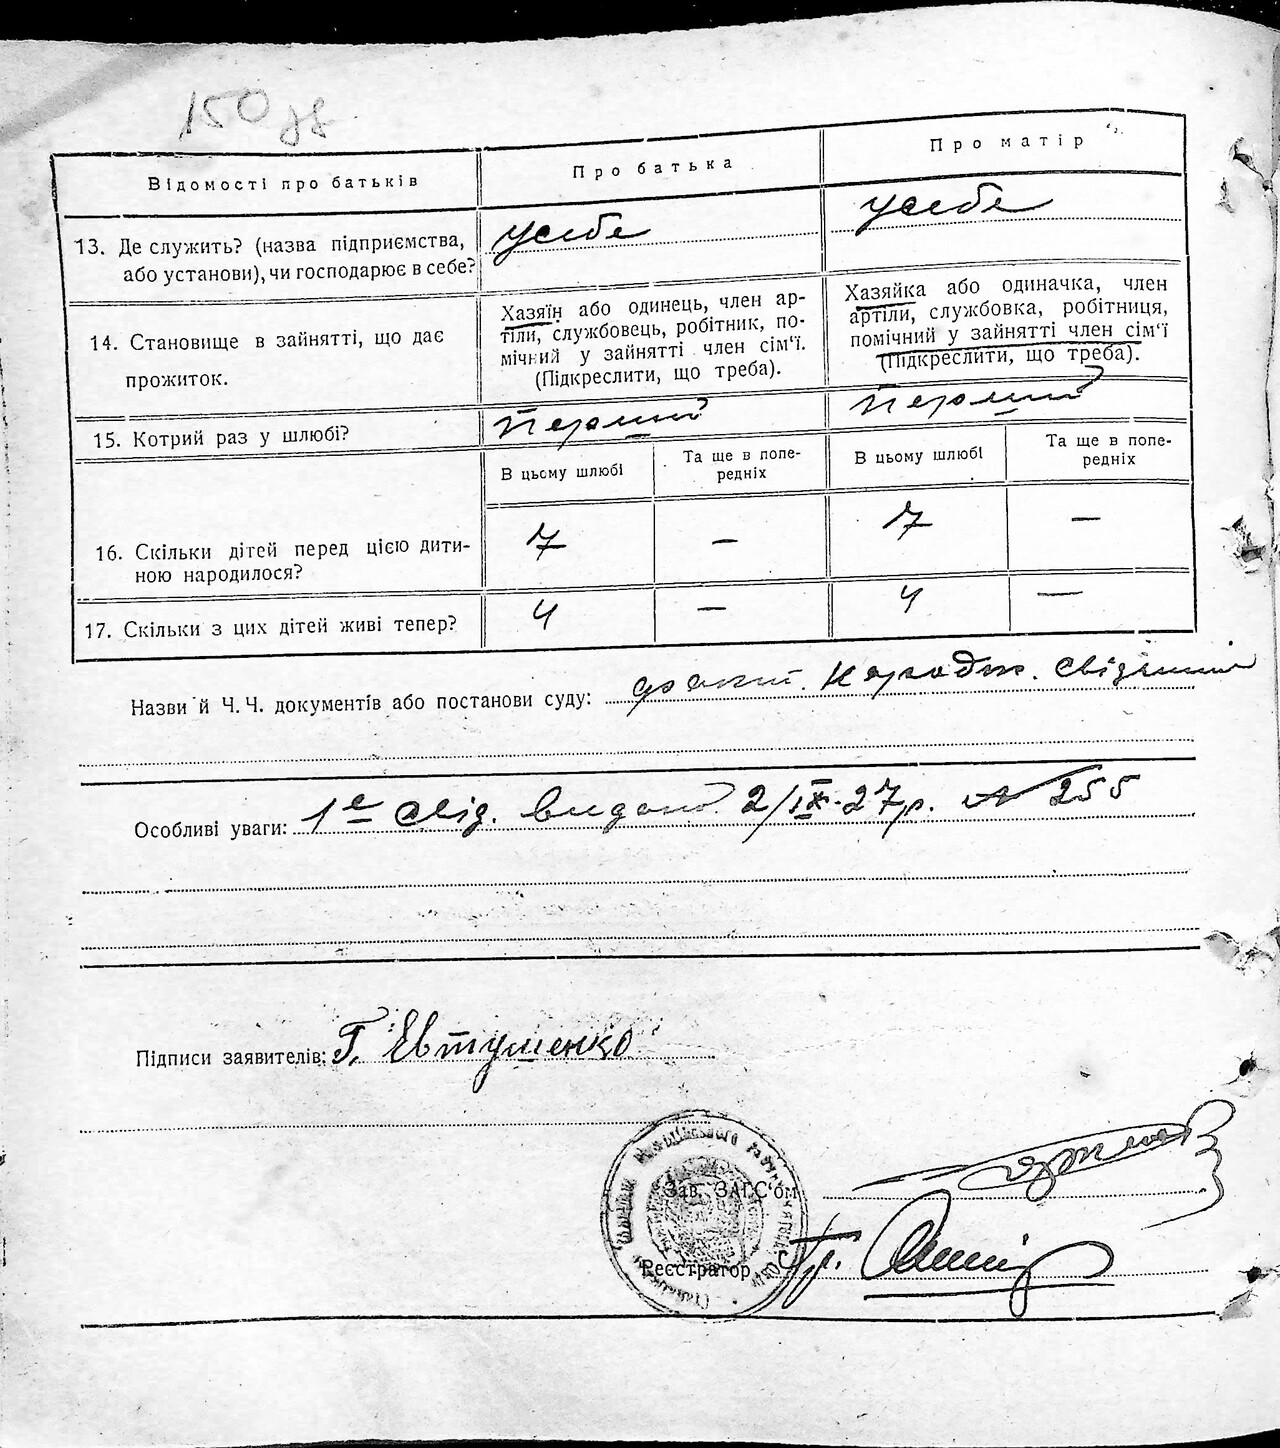 150
Відомості про батьків
Про батька
Про матір
13. Де служить? (назва підприємства,
або установи), чи господарює в себе?
усебе
усебе
14. Становище в зайнятті, що дає
прожиток.
Хазяїн або одинець, член ар-
тіли, службовець, робітник, по-
мічний у зайнятті член сім'ї.
(Підкреслити, що треба).
Хазяйка або одиначка, член
артіли, службовка, робітниця,
помічний у зайнятті член сім'ї
(Підкреслити, що треба).
15. Котрий раз у шлюбі?
Перший
Перший
В цьому шлюбі
Та ще в попе-
редніх
В цьому шлюбі
Та ще в попе-
редніх
16. Скільки дітей перед цією дити-
ною народилося?
7
—
7
—
17. Скільки з цих дітей живі тепер?
4
—
4
—
Назви й Ч. Ч. документів або постанови суду:
Особливі уваги: 1е свід. видано 2/IX-27р. № 255
Підписи заявителів: Г. Евтушенко
Зав. ЗАГС'ом
Реєстратор